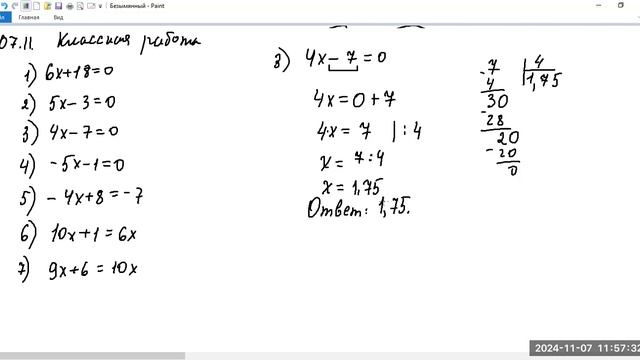 Безымянный - Paint
Файл Главная Вид
07.11. Классная работа
1) 6x+18=0
2) 5x-3=0
3) 4x-7=0
4) -5x-1=0
5) -4x+8=-7
6) 10x+1=6x
7) 9x+6=10x
3) 4x-7=0
4x=0+7
4·x=7 |:4
x=7:4
x=1,75
Ответ: 1,75.
7 | 4
4 1,75
30
-28
20
-20
0
2024-11-07 11:57:32